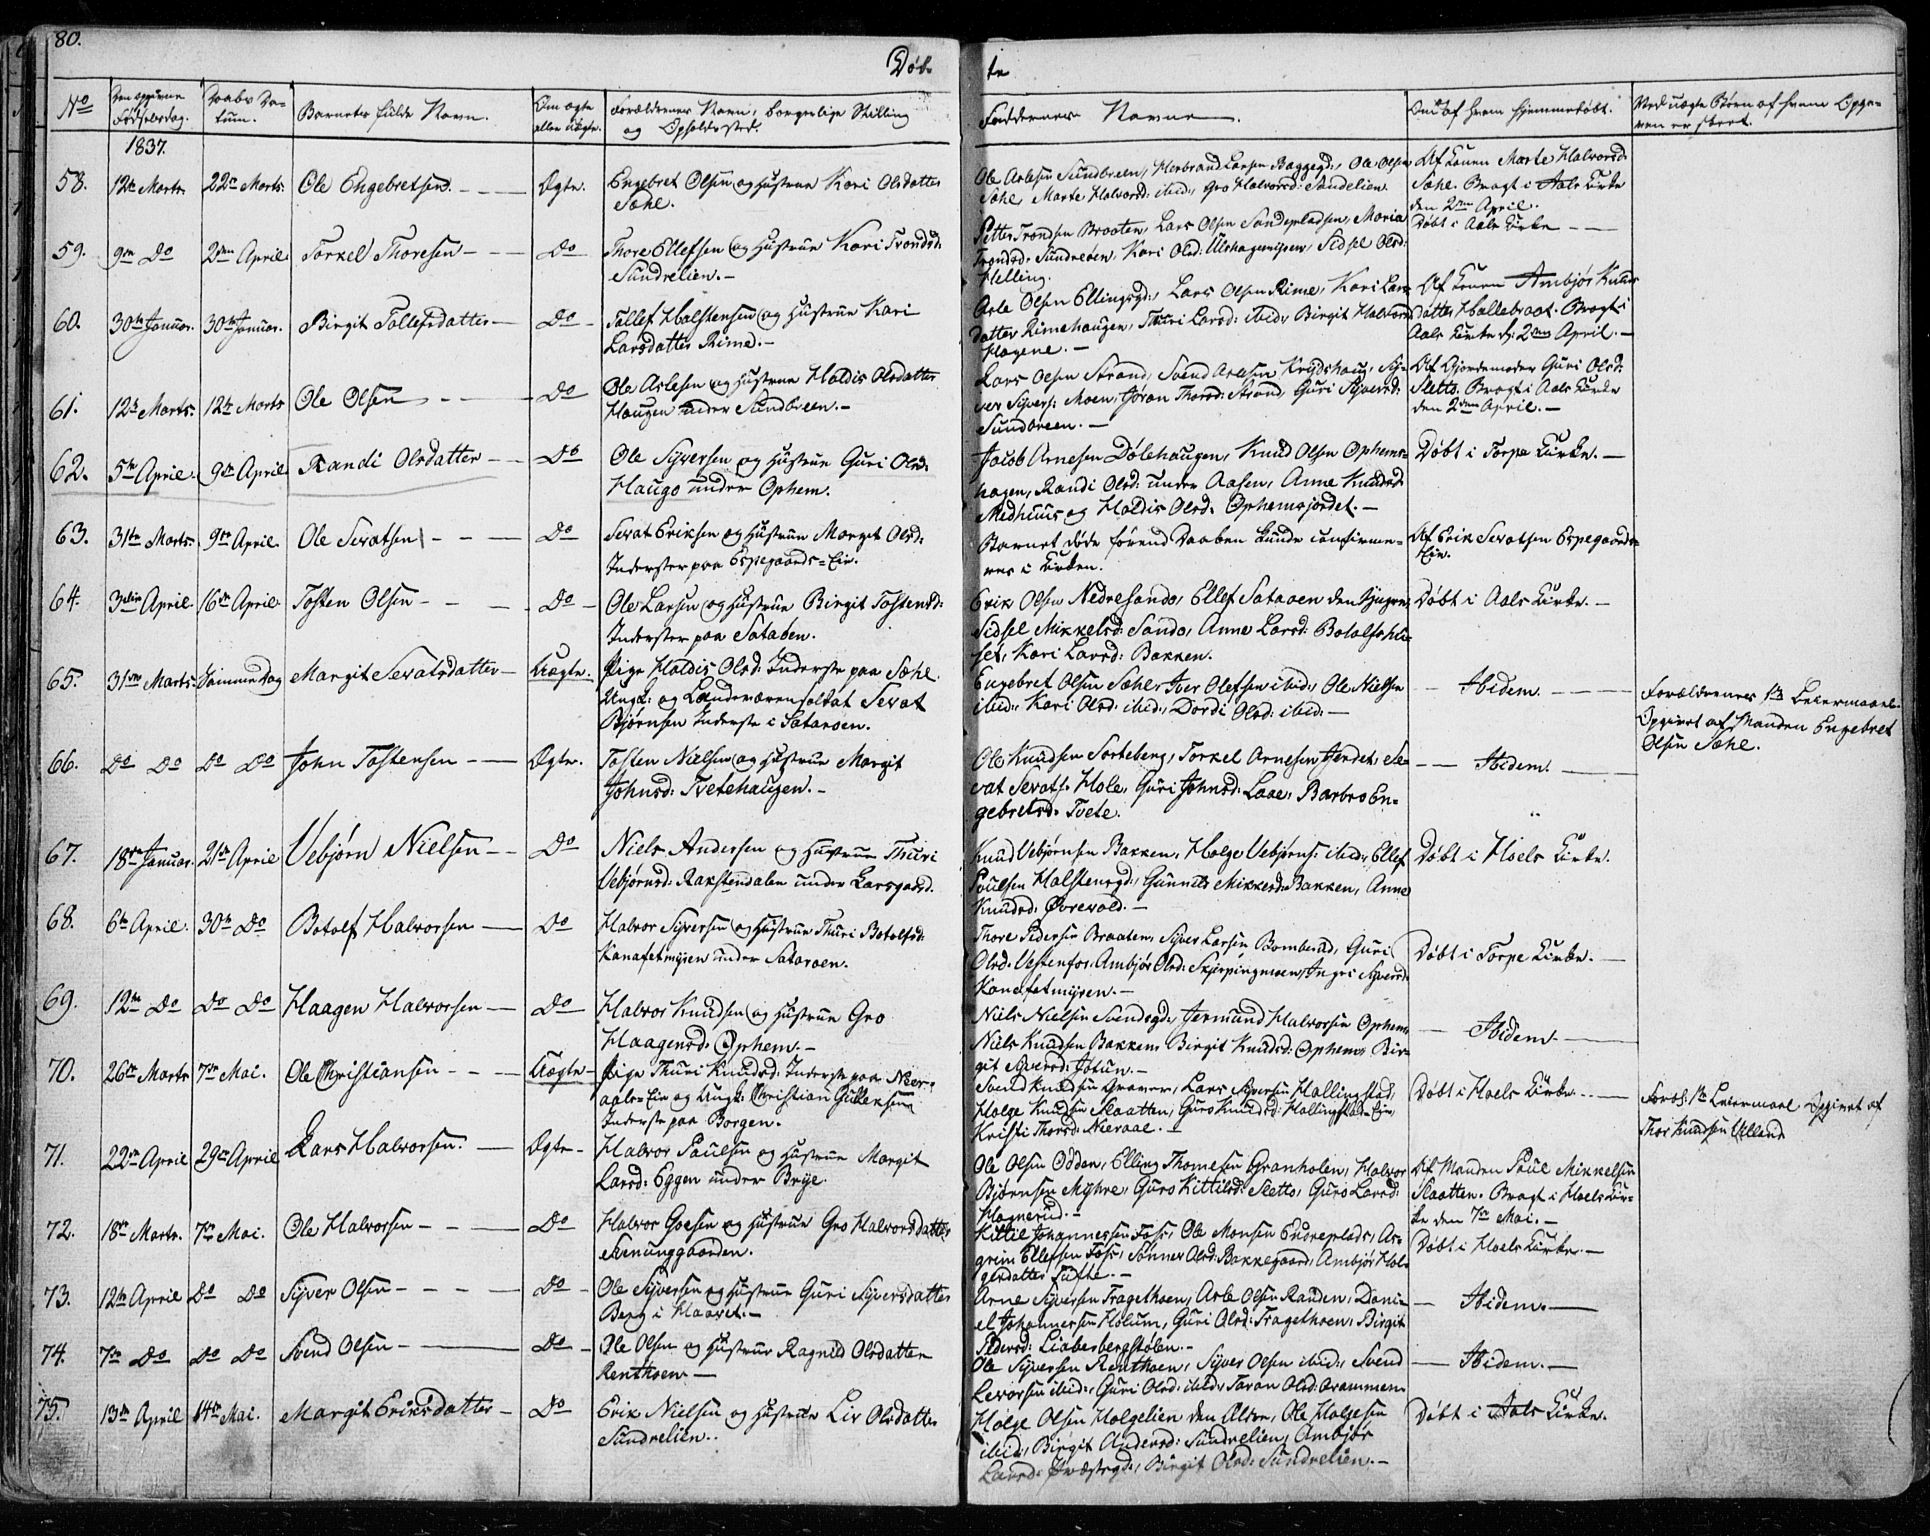 80.
Døb-
te
No
Den opgivne
Fødselsdag.
Daabs Da-
tum.
Barnets fulde Navn.
Om ægte
eller uægte.
Forældrenes Navn, borgerlige Stilling
og Opholdssted.
Faddernes Navne.
Om af hvem hjemmedøbt.
Ved uægte Børn af hvem Opga-
ven er skeet.
1837.
58.
12te Marts
22de Marts.
Ole Engebretsen.
Ægte.
Engebret Olsen og Hustrue Kari Olsdatter
Sæhl.
Ole Arlesen Sundbreen, Herbrand Larsen Baggegd:, Ole Olsen
Sæhl, Marte Halvorsd: ibid:, Gro Halvorsd: Sundrelien
Af Konen Marte Halvorsd:
Sæhl. Bragt i Aals Kirke
den 2den April.
59.
9de Do
2den April
Torkel Thoresen
Do
Thore Ellefsen og Hustrue Kari Trondsd:
Sundrelien.
Petter Trondsen Braaten, Lars Olsen Sundrepladsen, Maria
Trondsd: Sundreøen, Kari Olsd: Ulshagemyren, Sidsel Olsd:
Helling.
Døbt i Aals Kirke
60.
30te Januar.
30te Januar.
Birgit Tollefsdatter
Do
Tollef Halstensen og Hustrue Kari
Larsdatter Rime.
Arle Olsen Ellingsgd:, Lars Olsen Rime, Kari Lars-
datter Rimehaugen, Thuri Larsd: ibid:, Birgit Halvorsd:
Hagene.
Af Konen Ambjør Knuds
datter Hallebraat. Bragt i
Aals Kirke d: 2den April.
61.
12te Marts.
12te Marts
Ole Olsen
Do
Ole Arlesen og Hustrue Haldis Olsdatter
Haugen under Sundbreen.
Lars Olsen Strand, Svend Arlesen Krydshaug, Sy-
ver Syvers: Moen, Jøran Thorsd: Strand, Guri Syversd:
Sundbreen.
Af Gjordemoder Guri Olsd:
Slette. Bragt i Aals Kirke
den 2den April.
62.
5te April.
9de April
Randi Olsdatter
Do
Ole Syversen og Hustrue Guri Olsd:
Haugo under Ophem.
Jacob Arnesen Dølehaugen, Knud Olsen Ophems-
hagen, Randi Olsd: under Aasen, Anne Knudsd:
Medhuus og Haldis Olsd: Ophemsjordet.
Døbt i Torpe Kirke.
63.
31te Marts.
9de April.
Ole Sevatsen
Do
Sevat Eriksen og Hustrue Marget Olsd:
Inderster paa Espegaards-Eie.
Barnet døde førend Daaben kunde confirme-
res i Kirken.
Af Erik Sevatsen Espegaards-
Eie.
64.
3die April.
16de April.
Tosten Olsen
Do
Ole Larsen og Hustrue Birgit Tostensd:
Inderster paa Sataøen.
Erik Olsen Nedresando, Ellef Sataøen den Yngre,
Sidsel Mikkelsd: Sando, Anne Larsd: Botolfshu-
set, Kari Larsd: Bakken.
Døbt i Aals Kirke.
65.
31te Marts.
Samme Dag
Margit Sevatsdatter
Uægte.
Pige Haldis Olsd: Inderste paa Sæhl.
Ungk: og Landeværnsoldat Sevat
Bjørnsen Inderste i Sataroen.
Engebret Olsen Sæhl, Iver Olefsen ibid:, Ole Nielsen
ibid:, Kari Olsd: ibid:, Dordi Olsd: ibid:
Ibidem.
Forældrenes 1ste Leiermaal.
Opgivet af Manden Engebret
Olsen Sæhl.
66.
Do Do
Do Do
John Tostensen
Ægte.
Tosten Nielsen og Hustrue Margit
Johnsd: Tvetehaugen.
Ole Knudsen Sorteberg, Torkel Arnesen Jordet, Se-
vat Sevats: Hole, Guri Johnsd: Laae, Barbro En-
gebretsd: Tvete.
Ibidem.
67.
18de Januar.
21de April
Vebjørn Nielsen
Do
Niels Andersen og Hustrue Thuri
Vebjørnsd: Rakstendalen under Larsgaard.
Knud Vebjørnsen Bakken, Holge Vebjørns: ibid:, Ellef
Poulsen Halstensgd:, Gunnild Mikkelsd: Bakken, Anne
Knudsd: Øvrevold.
Døbt i Hoels Kirke.
68.
6te April.
30te Do
Botolf Halvorsen
Do
Halvor Syversen og Hustrue Thuri Botolfsd:
Kanafetmyren under Sataroen.
Thore Pedersen Braaten, Syver Larsen Bomberud, Guri
Olsd: Vestenfor, Ambjør Olsd: Skjerpingmoen, Ingri Syversd:
Kanafetmyren.
Døbt i Torpe Kirke.
69.
12te Do
Do Do
Haagen Halvorsen
Do
Halvor Knudsen og Hustrue Gro
Haagensd: Ophem.
Niels Nielsen Svendsgd:, Jermund Halvorsen Ophem,
Niels Knudsen Bakken, Birgit Knudsd: Ophem, Bir-
git Syversd: Jotun.
Ibidem.
70.
26de Marts
7de Mai.
Ole Christiansen
Uægte
Pige Thuri Knudsd: Inderste paa Nier-
aals-Eie og Ungk: Christian Gulleksen
Inderste paa Borgen.
Svend Knudsen Graver, Lars Syversen Hallingstad,
Holge Knudsen Slaatten, Guro Knudsd: Hallingstad-Eie,
Kristi Thorsd: Nieraal.
Døbt i Hoels Kirke.
Foræl: 1te Leiermaal Opgivet af
Thor Knudsen Ulland
71.
22de April
29de April
Lars Halvorsen.
Ægte
Halvor Paulsen og Hustrue Margit
Larsd: Eggen under Brye.
Ole Olsen Odden, Elling Thomesen Granholen, Halvor
Bjørnsen Myhre, Guro Kittilsd: Sletto, Guro Larsd:
Hagnerud.
Af Manden Paul Mikkelsen
Slaatten. Bragt i Hoels Kir-
ke den 7de Mai.
72.
18de Marts.
7de Mai.
Ole Halvorsen
Do
Halvor Goesen og Hustrue Gro Halvorsdatter
Arnunggaarden.
Kittil Johannessen Foss, Ole Monsen Endreplads, As-
grim Ellefsen Foss, Sønnev Olsd: Bakkegaard, Ambjør Hol-
gersdatter Tufte.
Døbt i Hoels Kirke.
73.
12te April
Do Do
Syver Olsen
Do
Ole Syversen og Hustrue Guri Syversdatter
Berg i Haavet.
Arne Syversen Tragethoen, Arle Olsen Randen, Dani-
el Johannesen Holum, Guri Olsd: Tragethoen, Birgit
Pedersd: Liaberbergstølen.
Ibidem.
74.
7de Do
Do Do
Svend Olsen
Do
Ole Olsen og Hustrue Ragnild Olsdatter
Renthoen
Ole Syversen Renthoen, Syver Olsen ibid:, Svend
Levorsen ibid:, Guri Olsd: ibid:, Taran Olsd: Arammen
Ibidem.
75.
13de April
14de Mai.
Margit Eriksdatter
Do
Erik Nielsen og Hustrue Liv Olsdatter
Sundrelien.
Holge Olsen Holgelien den Ældre, Ole Holgesen
ibid:, Birgit Andersd: Sundrelien, Ambjør
Larsd: Prestegd:, Birgit Olsd: Sundrelien.
Døbt i Aals Kirke.